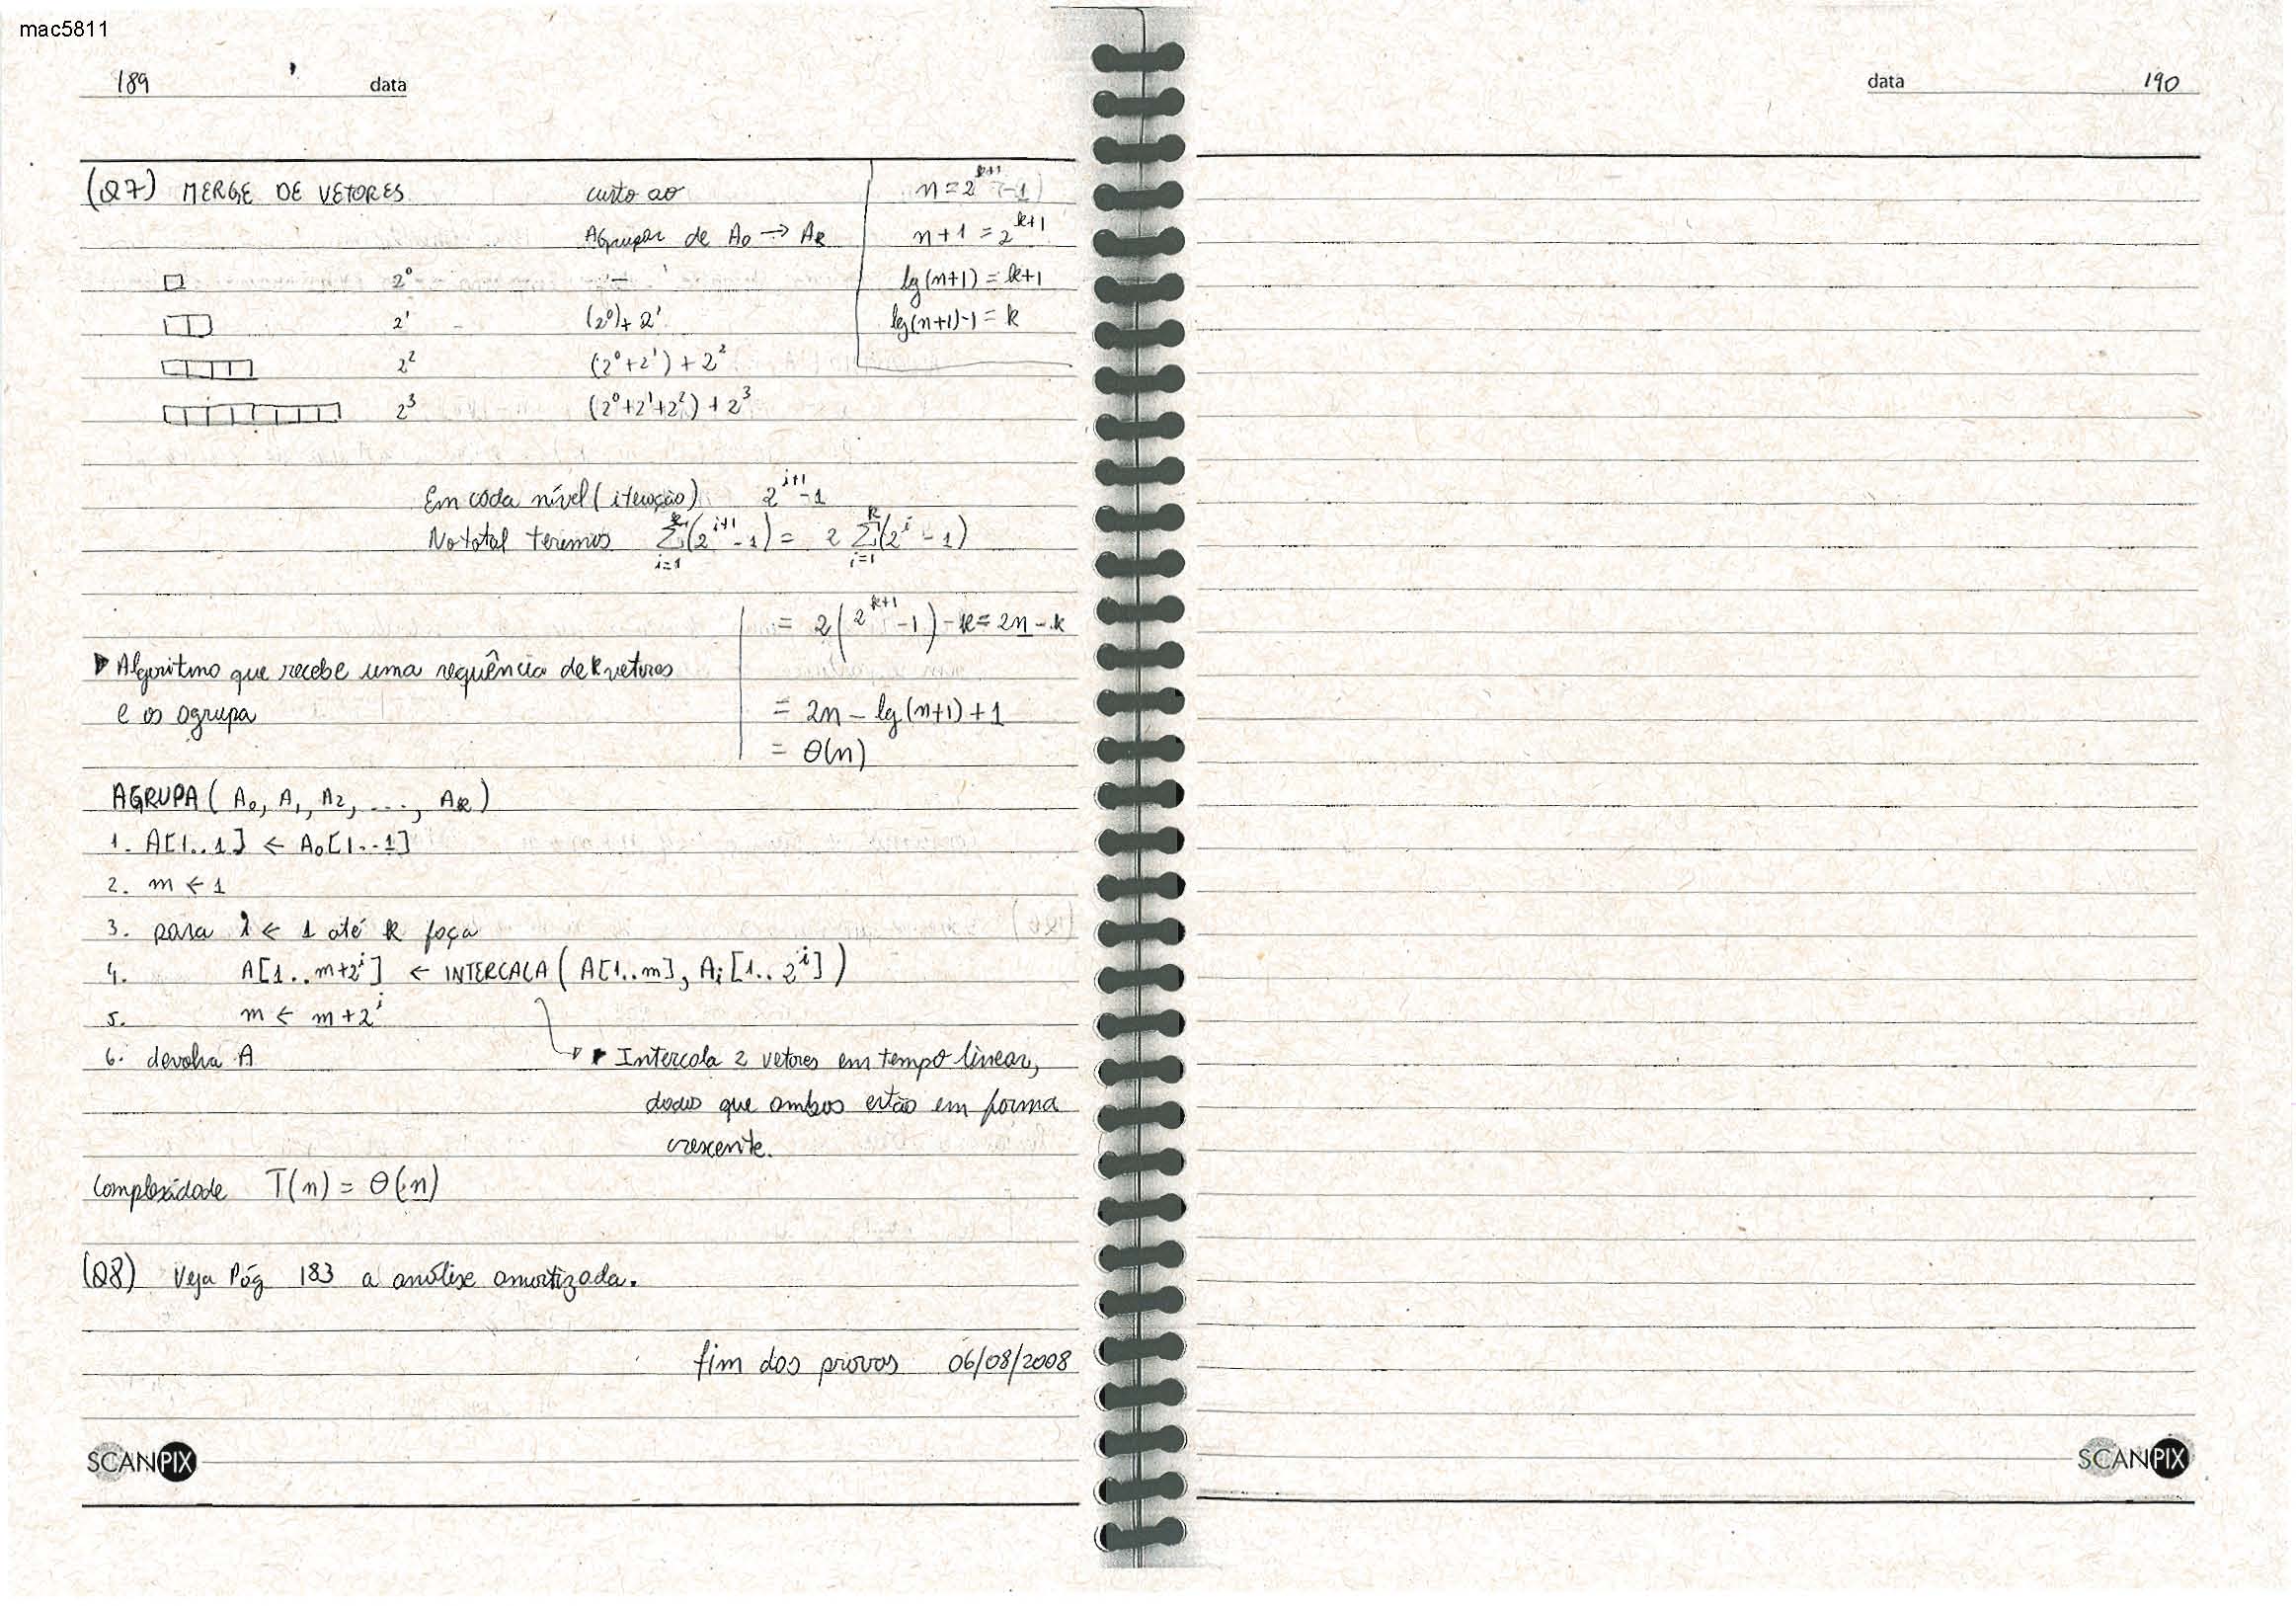 mac5811
189 data
(Q7) MERGE DE VETORES
custo ao
Agrupar de A₀ → Aₖ
2⁰ –
2¹ (2⁰)+ 2¹
2² (2⁰+2¹) + 2²
2³ (2⁰+2¹+2²) + 2³
n = 2ᵏ⁺¹ - 1
n+1 = 2ᵏ⁺¹
lg(n+1) = k+1
lg(n+1)-1 = k
Em cada nível (iteração) 2ⁱ⁺¹-1
No total teremos ∑ᵢ₌₁ᵏ (2ⁱ⁺¹ - 1) = 2 ∑ᵢ₌₁ᵏ (2ⁱ - 1)
= 2(2ᵏ⁺¹ - 1) - k = 2n - k
= 2n - lg(n+1) + 1
= Θ(n)
▶ Algoritmo que recebe uma sequência de k vetores
e os agrupa
AGRUPA ( A₀, A₁, A₂, ..., Aₖ )
1. A[1..1] ← A₀[1..1]
2. m ← 1
3. para i ← 1 até k faça
4. A[1..m+2ⁱ] ← INTERCALA ( A[1..m], Aᵢ[1..2ⁱ] )
5. m ← m+2ⁱ
6. devolva A
▶ Intercala 2 vetores em tempo linear,
dado que ambos estão em forma
crescente.
Complexidade T(n) = Θ(n)
(Q8) Veja Pág 183 a análise amortizada.
fim das provas 06/08/2008
SCANPIX
data 190
SCANPIX